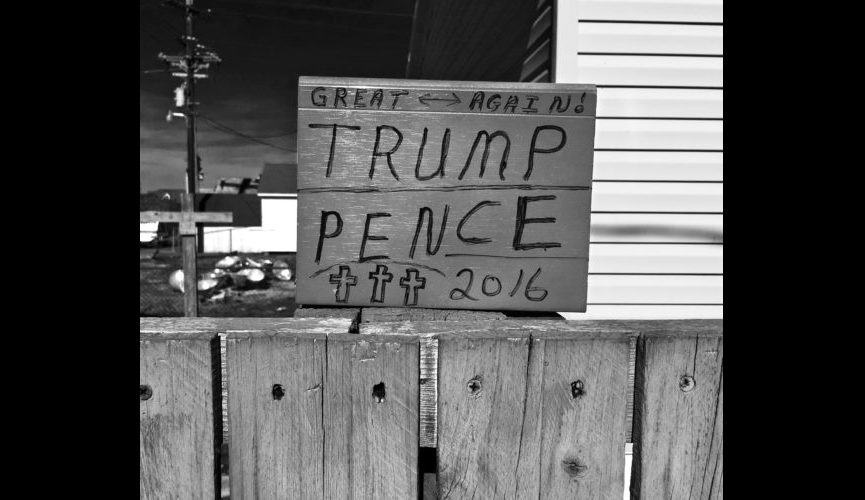 GREAT ↔ AGAIN!
TRUMP
PENCE
2016